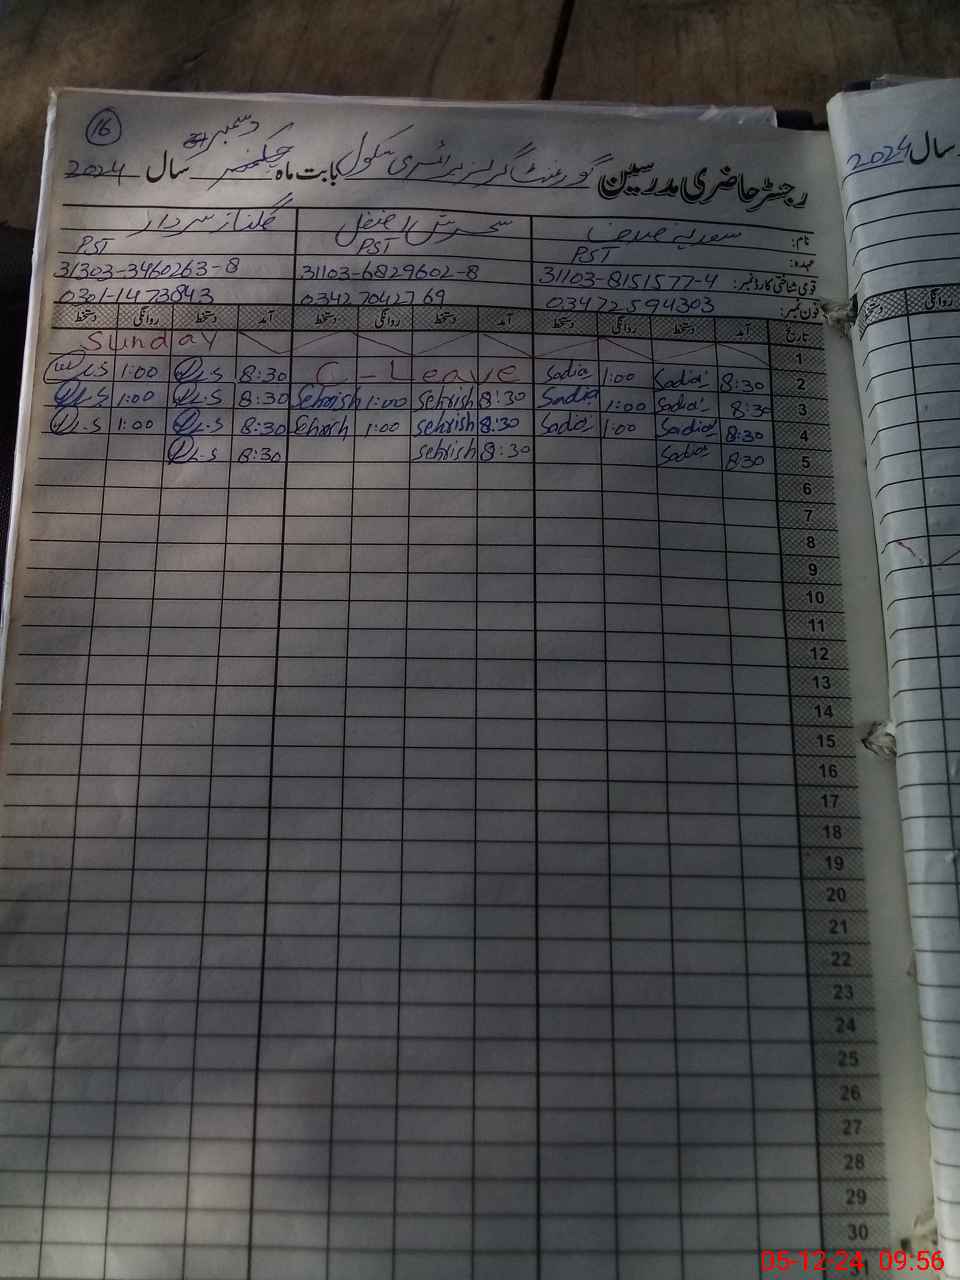 16
رجسٹر حاضری مدرسین گورنمنٹ گرلز پرائمری سکول بابت ماہ دسمبر سال 2024
سال 2024
نام: سعدیہ سحرش گلناز سردار
عہدہ: PST PST PST
قومی شناختی کارڈ نمبر: 31103-8151577-4 31103-6829602-8 31303-3460263-8
فون نمبر: 03472594303 03427042769 0301-1473843
تاریخ آمد دستخط روانگی دستخط آمد دستخط روانگی دستخط آمد دستخط روانگی دستخط
روانگی دستخط
1 Sunday
2 8:30 Sadia 1:00 Sadia C-Leave 8:30 1:00
3 8:30 Sadia 1:00 Sadia 8:30 Sehrish 1:00 Sehrish 8:30 1:00
4 8:30 Sadia 1:00 Sadia 8:30 Sehrish 1:00 8:30 1:00
5 8:30 Sadia 8:30 Sehrish 8:30
6
7
8
9
10
11
12
13
14
15
16
17
18
19
20
21
22
23
24
25
26
27
28
29
30
31
05-12-24 09:56